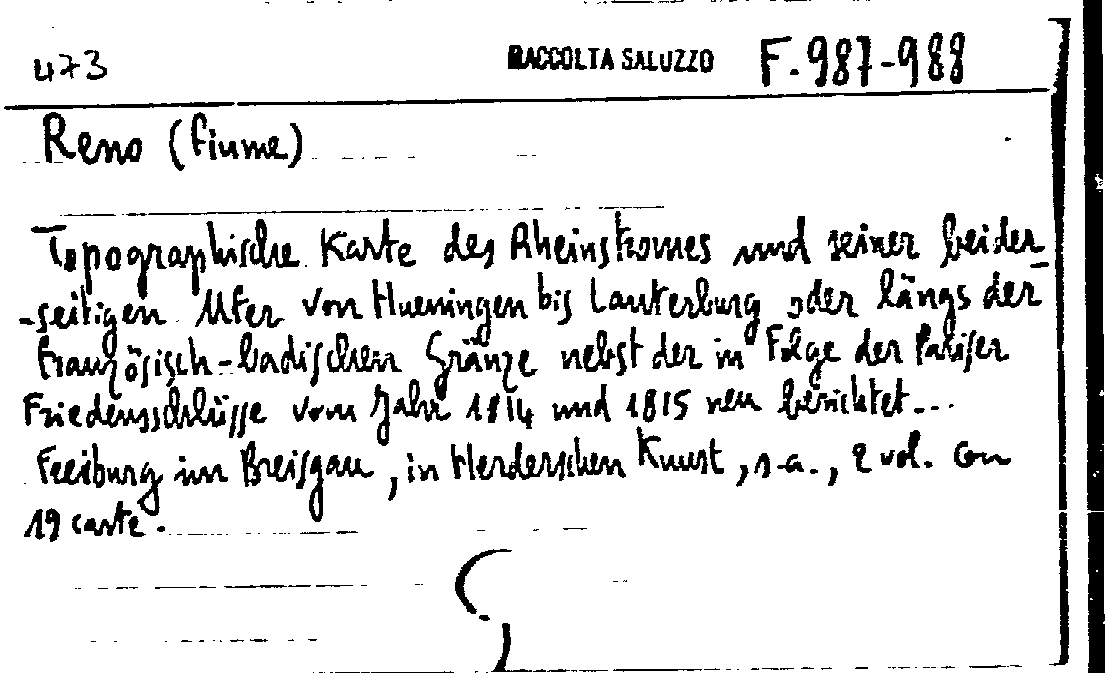 473 RACCOLTA SALUZZO F. 987-988
Reno (fiume)
Topographische Karte des Rheinstromes und seiner beider
-seitigen Ufer von Hueningen bis Lauterburg oder längs der
französisch-badischen Gränze nebst der in Folge der Pariser
Friedensschlüsse vom Jahr 1814 und 1815 neu berichtet...
Freiburg im Breisgau, in Herderschen Kunst, s.a., 2 vol. con
19 carte.